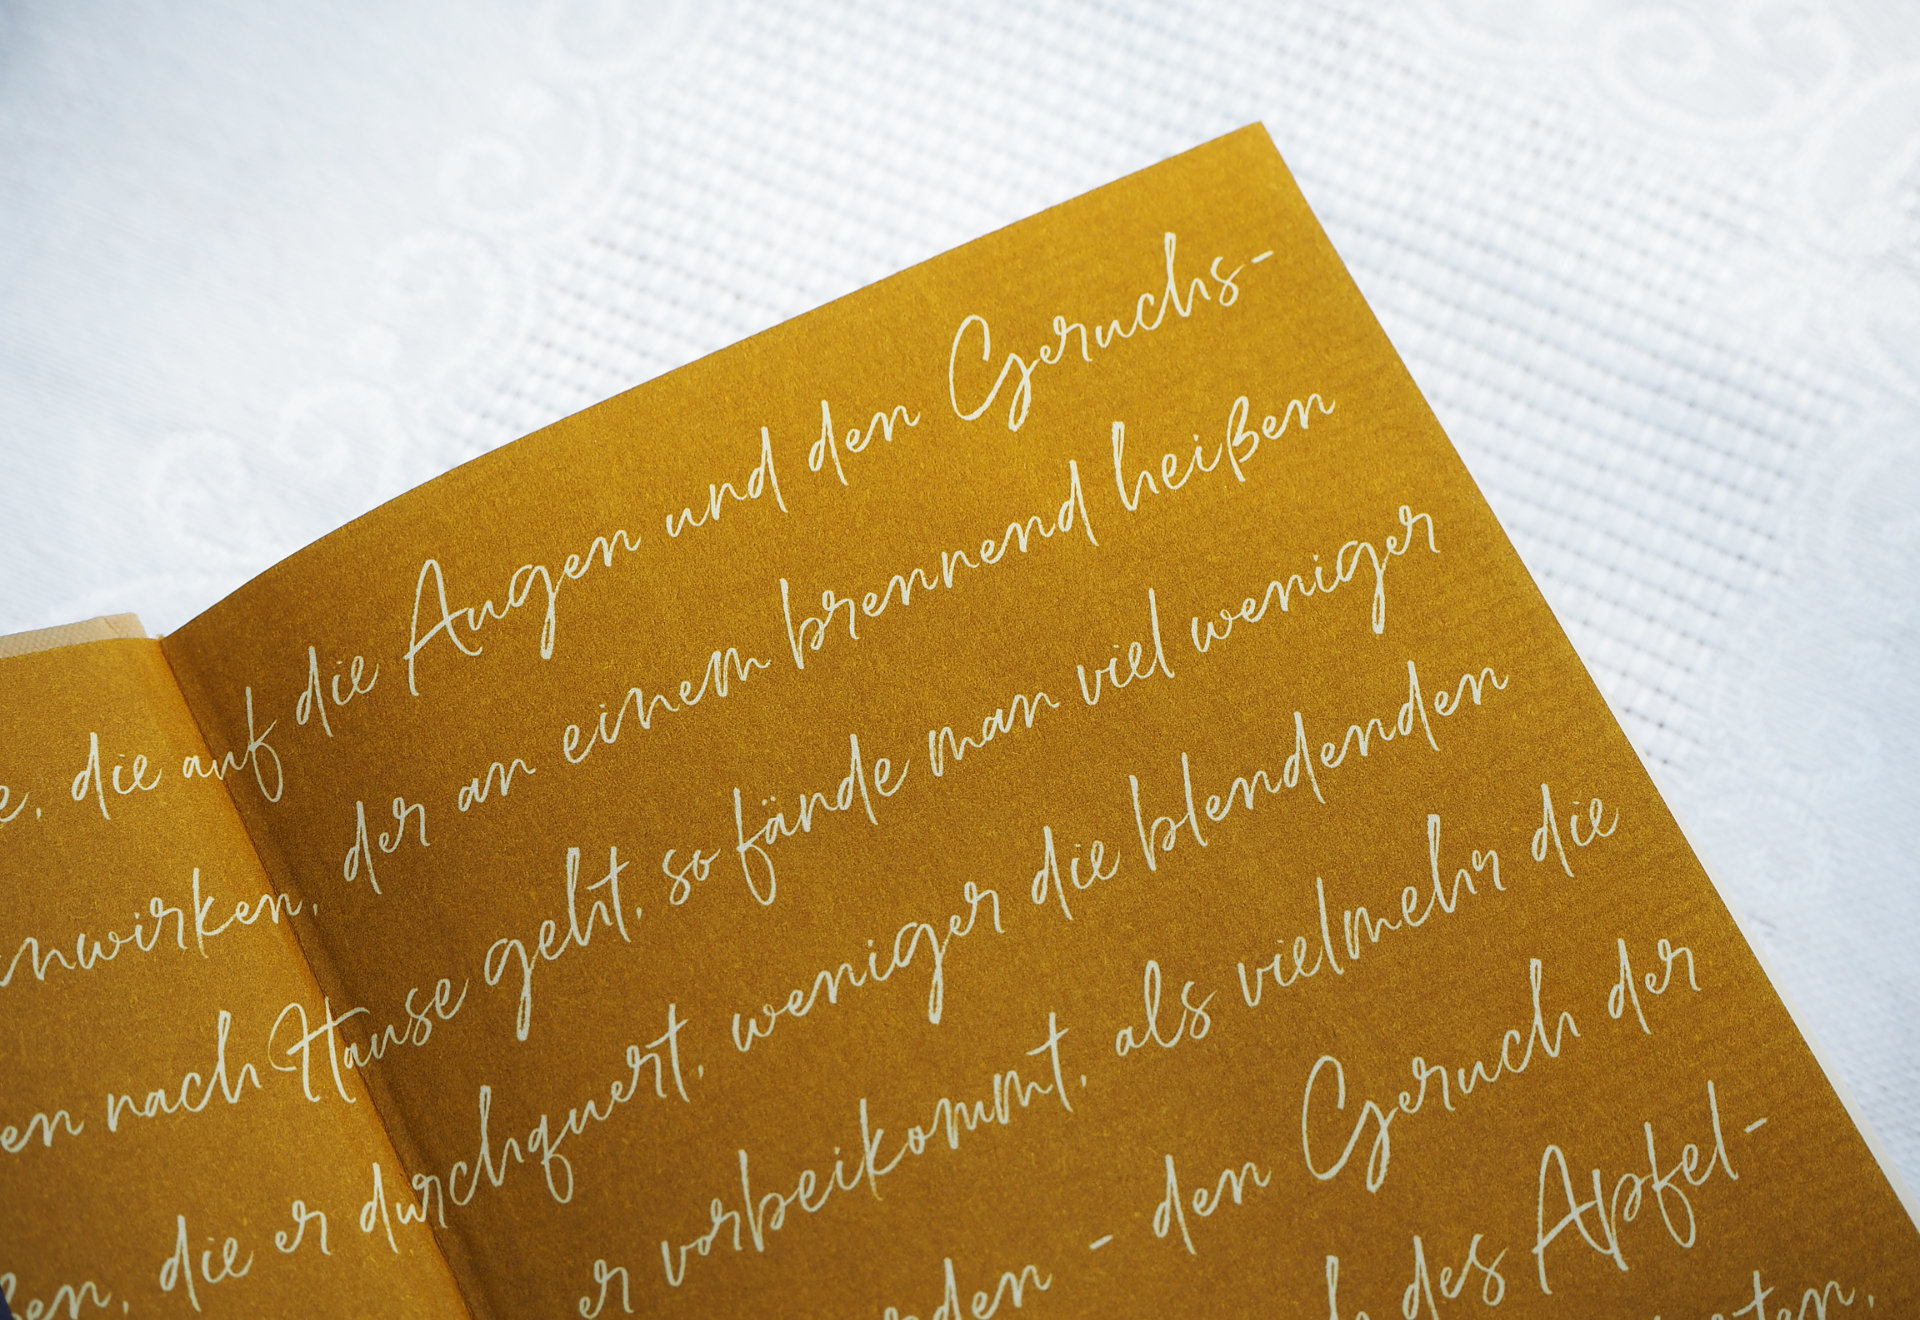 e, die auf die Augen und den Geruchs-
nwirken, der an einem brennend heißen
en nach Hause geht, so fände man viel weniger
die er durchquert, weniger die blendenden
er vorbeikommt, als vielmehr die
den - den Geruch der
des Apfel-